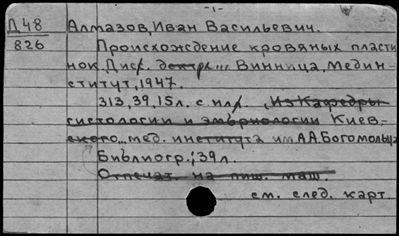 -1-
Д 48 Алмазов, Иван Васильевич.
826 Происхождение кровяных пласти
нок. Дисс. доктр... Винница, Медин-
ститут, 1947.
313, 39, 15 л. с илл. Из Кафедры
гистологии и эмбриологии Киев-
ского... мед. института им. А.А. Богомольца
Библиогр.: 39 л.
Отпечат. на пиш. маш.
см. след. карт.